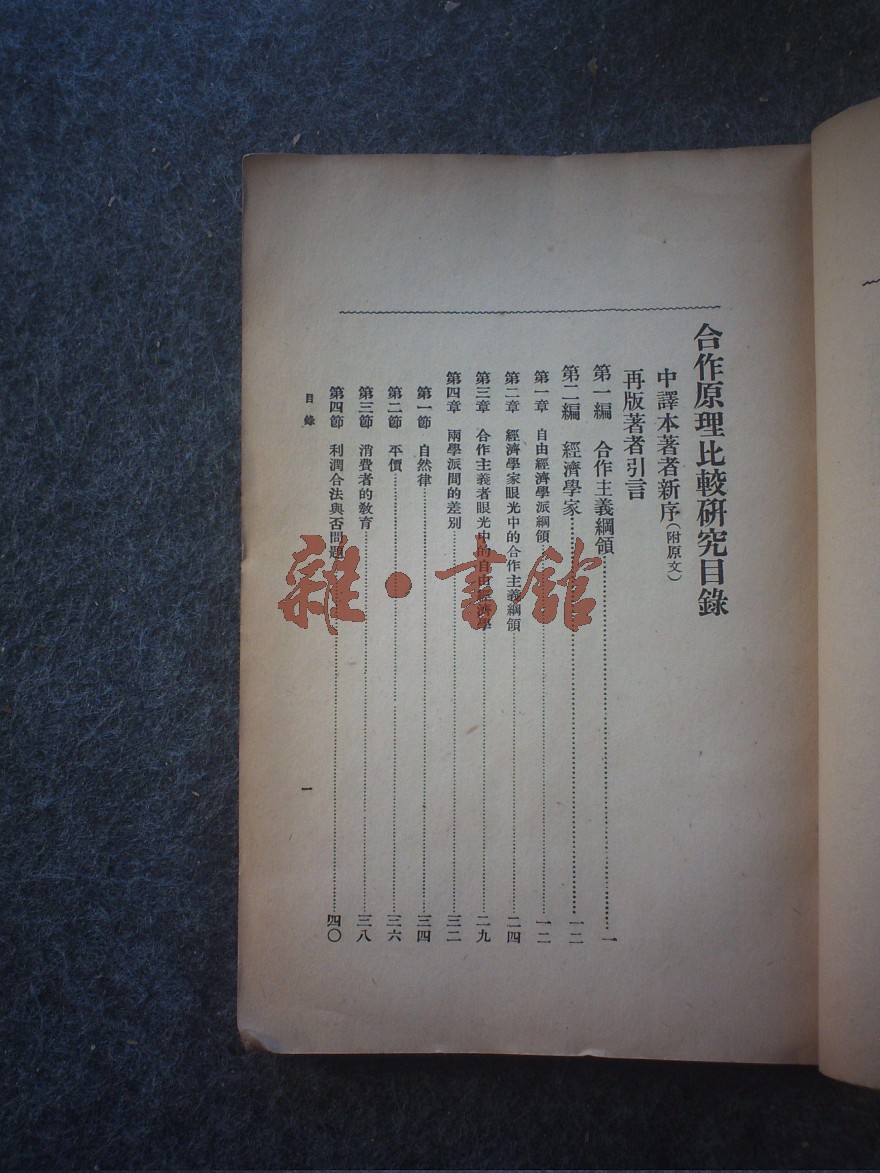 合作原理比較研究目錄
中譯本著者新序(附原文)
再版著者引言
第一編 合作主義綱領 一
第二編 經濟學家 一二
第一章 自由經濟學派綱領 一二
第二章 經濟學家眼光中的合作主義綱領 二四
第三章 合作主義者眼光中的自由經濟學 二九
第四章 兩學派間的差別 三二
第一節 自然律 三四
第二節 平價 三六
第三節 消費者的敎育 三八
第四節 利潤合法與否問題 四〇
目錄 一
雜·書舘